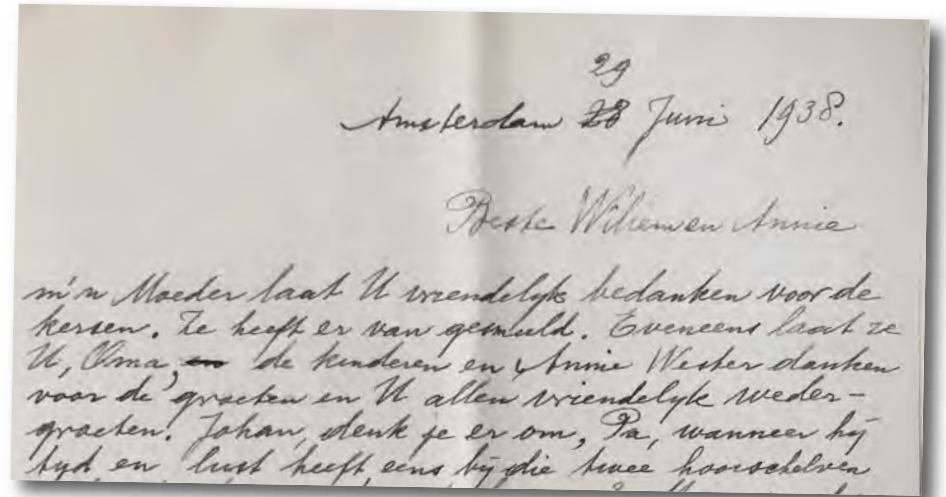 29
Amsterdam 28 Juni 1938.
Beste Willem en Annie
m'n Moeder laat U vriendelyk bedanken voor de
kersen. Ze heeft er van gesmuld. Eveneens laat ze
U, Oma, en de kinderen en Annie Wester danken
voor de groeten en U allen vriendelyk weder-
groeten. Johan, denk je er om, Pa, wanneer hy
tyd en lust heeft, eens by die twee hooischelven